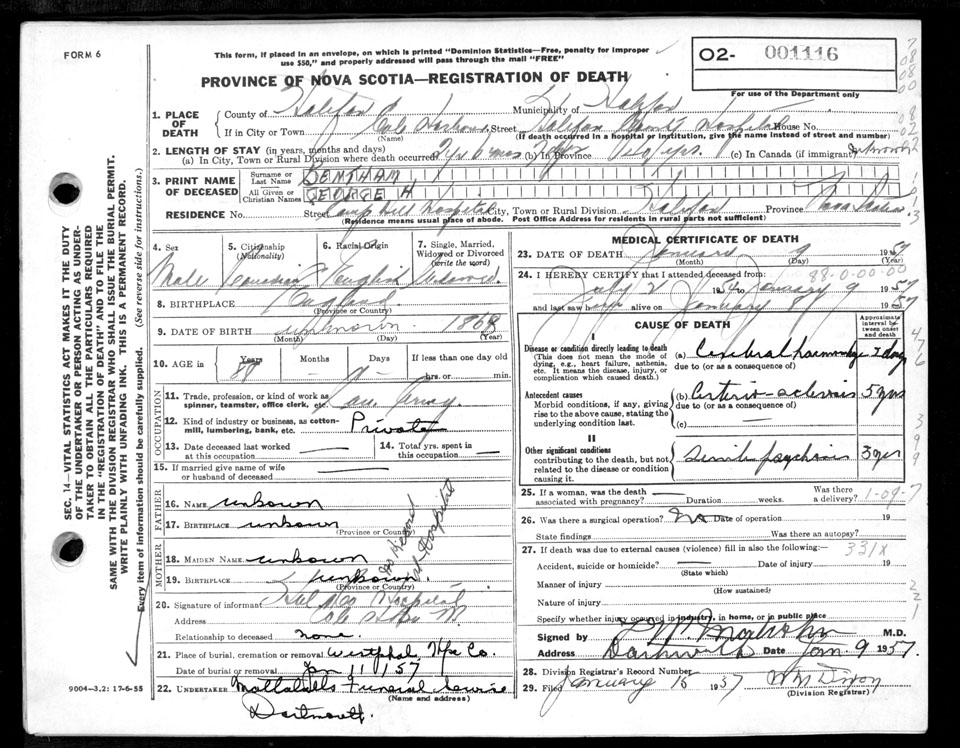 FORM 6
This form, if placed in an envelope, on which is printed "Dominion Statistics—Free, penalty for improper
use $50," and properly addressed will pass through the mail "FREE"
PROVINCE OF NOVA SCOTIA—REGISTRATION OF DEATH
02- 001116
For use of the Department only
1. PLACE OF DEATH
County of Halifax Municipality of Halifax
If in City or Town Cole Harbour Street Halifax County Hospital House No.
(Name) (If death occurred in a hospital or institution, give the name instead of street and number)
2. LENGTH OF STAY (in years, months and days)
(a) In City, Town or Rural Division where death occurred (b) In Province (c) In Canada (if immigrant) unknown
3. PRINT NAME OF DECEASED
Surname or Last Name BENTHAM
All Given or Christian Names GEORGE H
RESIDENCE No. Street Camp Hill Hospital City, Town or Rural Division Halifax Province Nova Scotia
(Residence means usual place of abode. Post Office Address for residents in rural parts not sufficient)
4. Sex Male
5. Citizenship (Nationality) Canadian
6. Racial Origin English
7. Single, Married, Widowed or Divorced (write the word) Widowed
8. BIRTHPLACE England
(Province or Country)
9. DATE OF BIRTH unknown 1868
(Month) (Day) (Year)
10. AGE in Years Months Days If less than one day old
hrs. or min.
OCCUPATION
11. Trade, profession, or kind of work as spinner, teamster, office clerk, etc. Can Army
12. Kind of industry or business, as cotton-mill, lumbering, bank, etc. Private
13. Date deceased last worked at this occupation
14. Total yrs. spent in this occupation
15. If married give name of wife or husband of deceased
FATHER
16. NAME unknown
17. BIRTHPLACE unknown
(Province or Country)
MOTHER
18. MAIDEN NAME unknown
19. BIRTHPLACE unknown
(Province or Country)
No Record at Hospital
20. Signature of informant Hospital
Address Cole
Relationship to deceased none.
21. Place of burial, cremation or removal Westphal, Hfx Co.
Date of burial or removal Jan 11/57
22. UNDERTAKER Mattatalls Funeral Service
(Name and address)
Dartmouth.
9004-3.2: 17-6-55
SEC. 14—VITAL STATISTICS ACT MAKES IT THE DUTY
OF THE UNDERTAKER OR PERSON ACTING AS UNDER-
TAKER TO OBTAIN ALL THE PARTICULARS REQUIRED
IN THE "REGISTRATION OF DEATH" AND TO FILE THE
SAME WITH THE DIVISION REGISTRAR WHO SHALL ISSUE THE BURIAL PERMIT.
WRITE PLAINLY WITH UNFADING INK. THIS IS A PERMANENT RECORD.
Every item of information should be carefully supplied. (See reverse side for instructions.)
MEDICAL CERTIFICATE OF DEATH
23. DATE OF DEATH January 9 1957
(Month) (Day)
24. I HEREBY CERTIFY that I attended deceased from 88-0-00-00
July 21 to January 9 1957
and last saw him on January 8 1957
CAUSE OF DEATH
Approximate interval between onset and death
I
Disease or condition directly leading to death
(This does not mean the mode of dying, e.g., heart failure, asthenia, etc. It means the disease, injury, or complication which caused death.)
(a) Cerebral haemorrhage
due to (or as a consequence of)
Antecedent causes
Morbid conditions, if any, giving rise to the above cause, stating the underlying condition last.
(b) Arterio-sclerosis 5 yrs
due to (or as a consequence of)
(c)
II
Other significant conditions
contributing to the death, but not related to the disease or condition causing it.
Senile psychosis 3 yrs
25. If a woman, was the death associated with pregnancy? Duration weeks. Was there a delivery?
1-09-7
26. Was there a surgical operation? No Date of operation 19
State findings Was there an autopsy?
27. If death was due to external causes (violence) fill in also the following:—
331X
Accident, suicide or homicide? Date of injury 19
(State which)
Manner of injury
(How sustained)
Nature of injury
Specify whether injury occurred in industry, in home, or in public place
Signed by M.D.
Address Dartmouth Date Jan. 9 1957.
28. Division Registrar's Record Number
29. Filed January 15 1957 W M Dixon
(Division Registrar)